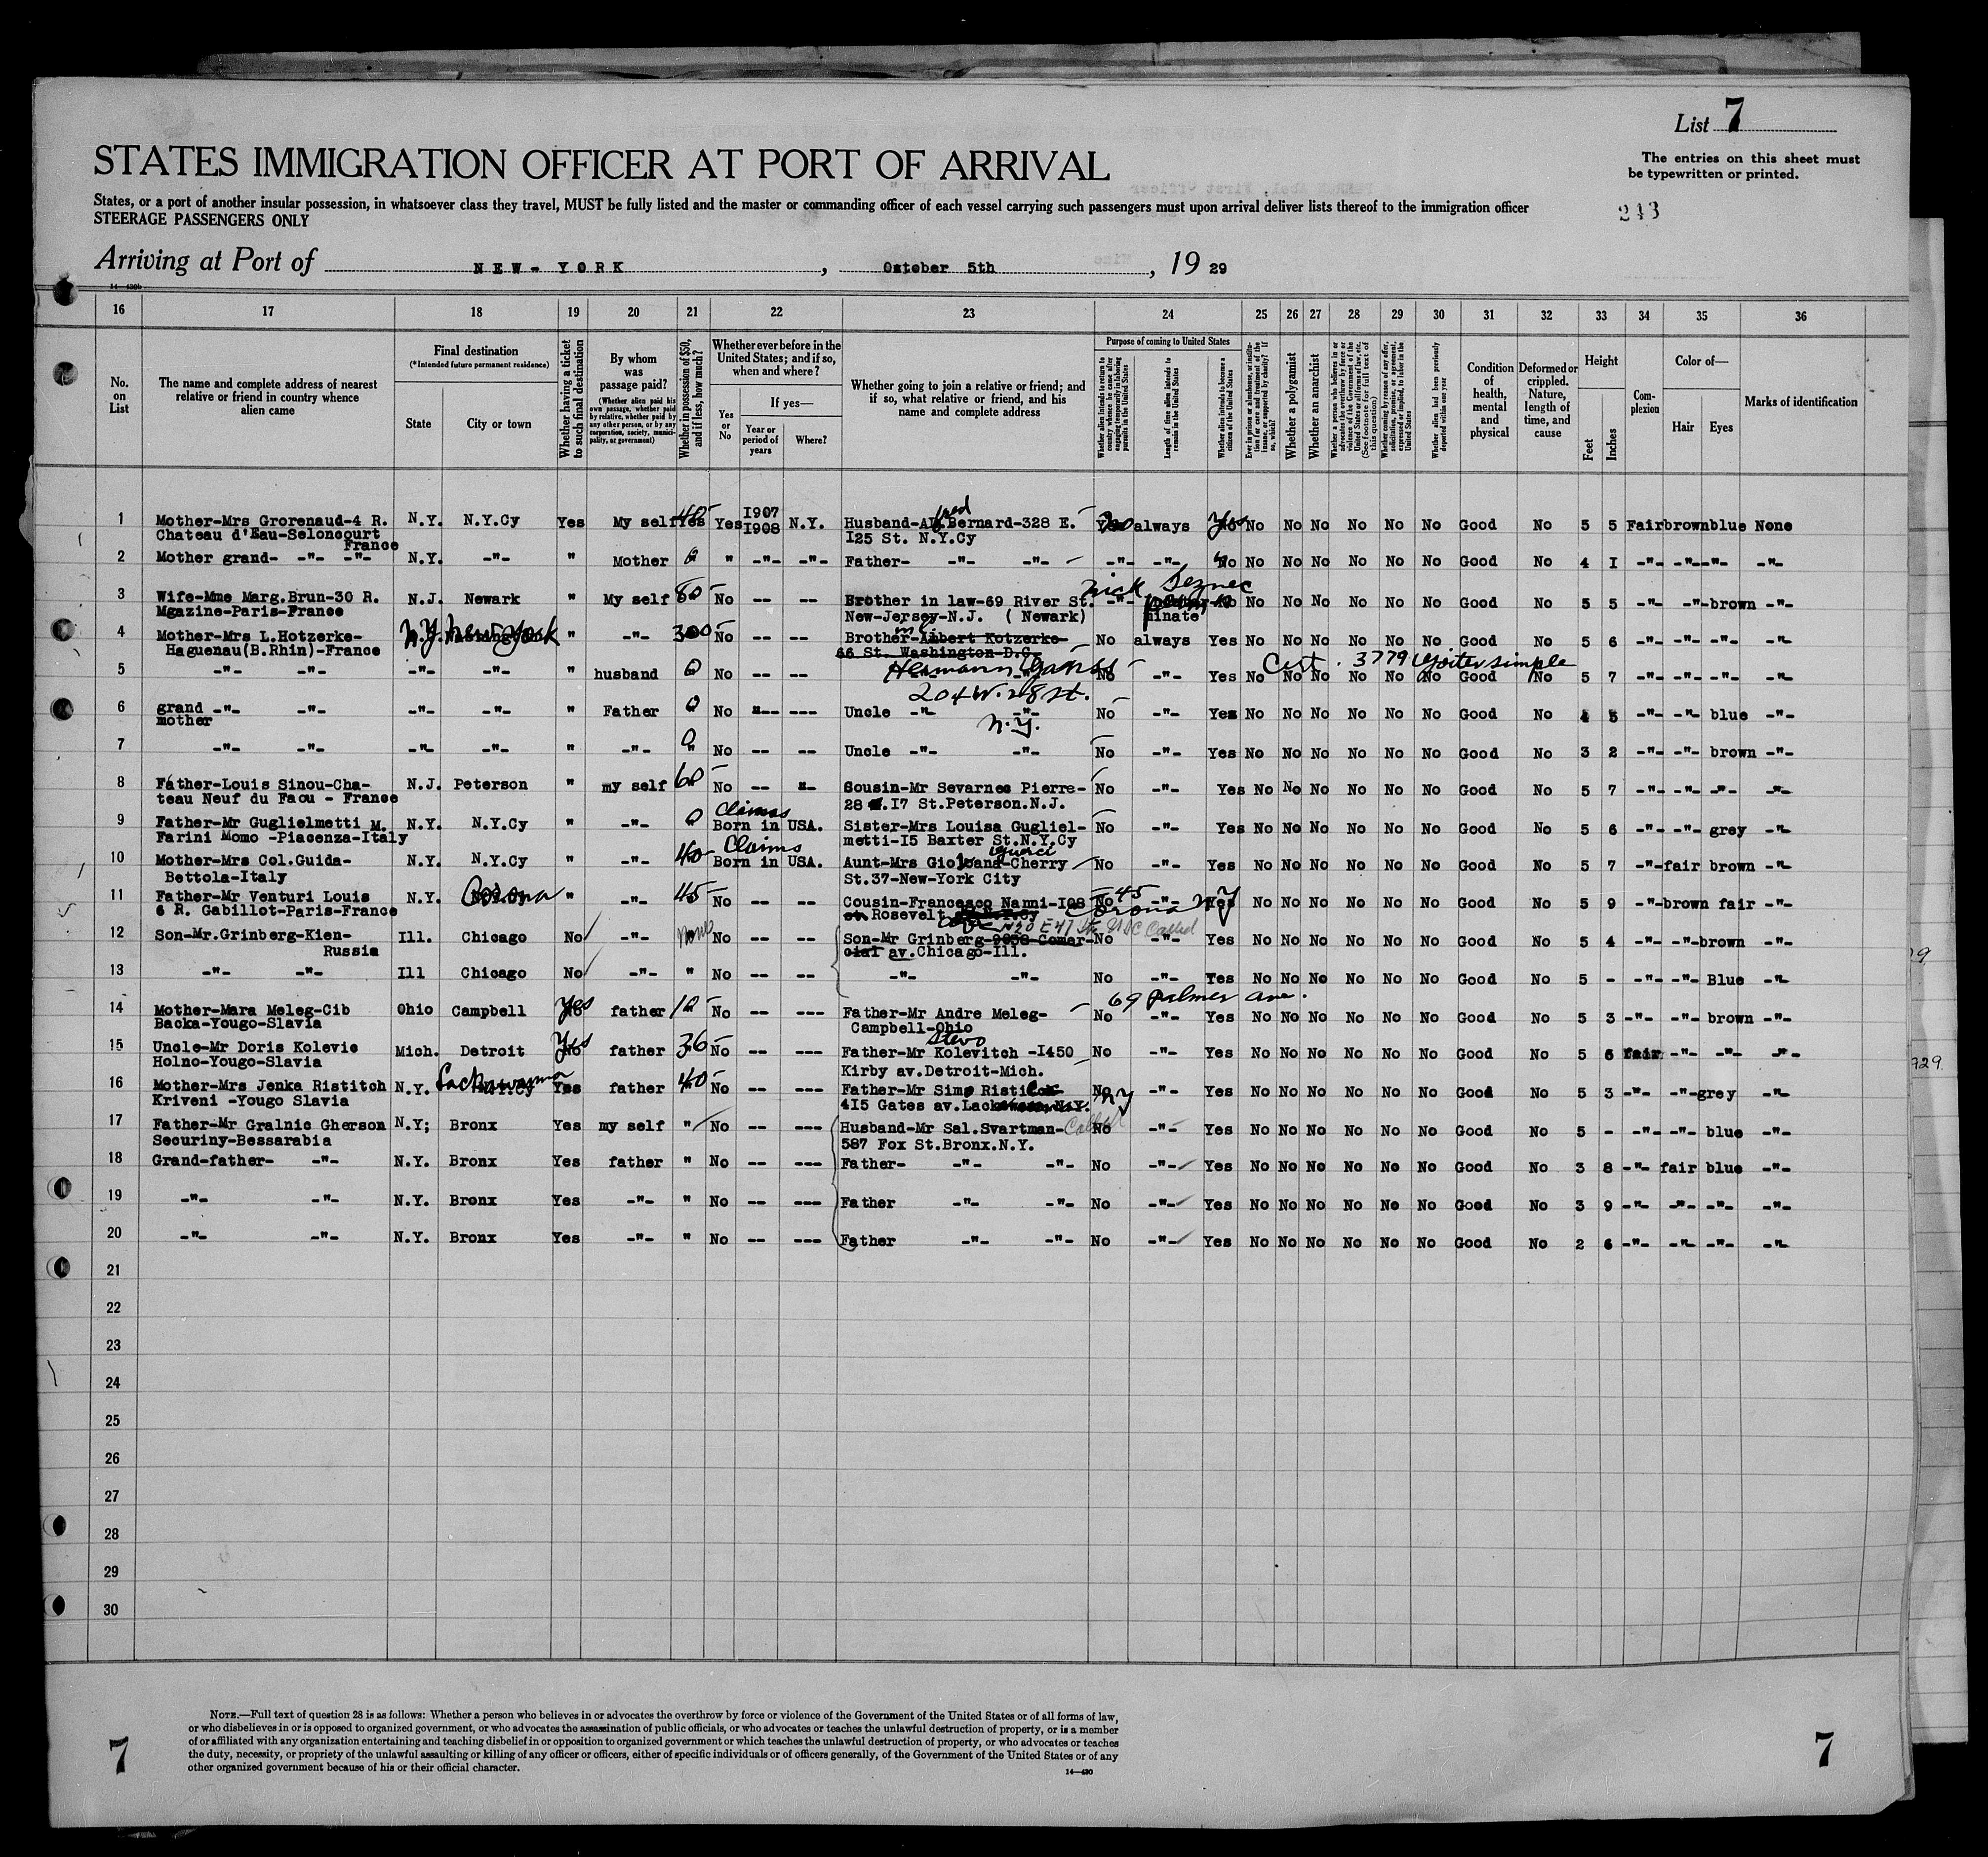 List 7
STATES IMMIGRATION OFFICER AT PORT OF ARRIVAL
The entries on this sheet must
be typewritten or printed.
States, or a port of another insular possession, in whatsoever class they travel, MUST be fully listed and the master or commanding officer of each vessel carrying such passengers must upon arrival deliver lists thereof to the immigration officer
STEERAGE PASSENGERS ONLY
243
Arriving at Port of NEW-YORK, October 5th, 19 29
16 17 18 19 20 21 22 23 24 25 26 27 28 29 30 31 32 33 34 35 36
No. on List
The name and complete address of nearest relative or friend in country whence alien came
Final destination
(*Intended future permanent residence)
State
City or town
Whether having a ticket to such final destination
By whom was passage paid?
(Whether alien paid his own passage, whether paid by relative, whether paid by any other person, or by any corporation, society, municipality, or government)
Whether in possession of $50, and if less, how much?
Whether ever before in the United States; and if so, when and where?
Yes or No
If yes—
Year or period of years
Where?
Whether going to join a relative or friend; and if so, what relative or friend, and his name and complete address
Purpose of coming to United States
Whether alien intends to return to country whence he came after engaging temporarily in laboring pursuits in the United States
Length of time alien intends to remain in the United States
Whether alien intends to become a citizen of the United States
Ever in prison or almshouse, or institution for care and treatment of the insane, or supported by charity? If so, which?
Whether a polygamist
Whether an anarchist
Whether a person who believes in or advocates the overthrow by force or violence of the Government of the United States or all forms of law, etc. (See footnote for full text of this question)
Whether coming by reason of any offer, solicitation, promise, or agreement, expressed or implied, to labor in the United States
Whether alien had been previously deported within one year
Condition of health, mental and physical
Deformed or crippled. Nature, length of time, and cause
Height
Feet
Inches
Complexion
Color of—
Hair
Eyes
Marks of identification
1 Mother-Mrs Grorenaud-4 R. N.Y. N.Y.Cy Yes My self 40 Yes 1907 N.Y. Husband-Alfred Bernard-328 E. always Yes No No No No No No Good No 5 5 Fair brown blue None
Chateau d'Eau-Seloncourt 1908 I25 St. N.Y.Cy
France
2 Mother grand- -"- -"- N.Y. -"- " Mother 0 " -"- -"- Father- -"- -"- -"- -"- No No No No No No No Good No 4 I -"- -"- -"- -"-
3 Wife-Mme Marg.Brun-30 R. N.J. Newark " My self 80 No -- -- Brother in law-69 River St. Nick -"- No No No No No No No Good No 5 5 -"- -"- brown -"-
Mgazine-Paris-France New-Jersey-N.J. ( Newark) minate
4 Mother-Mrs L.Hotzerke- N.Y. New York " -"- 300 No -- -- Brother-Albert Kotzerke- No always Yes No No No No No No Good No 5 6 -"- -"- -"- -"-
Haguenau(B.Rhin)-France 66 St. Washington-D.C.
5 -"- -"- -"- -"- " husband 0 No -- -- Hermann No -"- Yes No No No No No No Good No 5 7 -"- -"- -"- -"-
Cert. 3779 Goiter simple
204 W. 28 St.
N.Y.
6 grand -"- -"- -"- -"- " Father 0 No --- --- Uncle -"- -"- No -"- Yes No No No No No No Good No 4 5 -"- -"- blue -"-
mother
7 -"- -"- -"- -"- " -"- 0 No -- -- Uncle -"- -"- No -"- Yes No No No No No No Good No 3 2 -"- -"- brown -"-
8 Father-Louis Sinou-Cha- N.J. Peterson " my self 60 No -- -- Sousin-Mr Sevarnes Pierre- No -"- Yes No No No No No No Good No 5 7 -"- -"- -"- -"-
teau Neuf du Faou - France 28 I7 St.Peterson.N.J.
9 Father-Mr Guglielmetti M. N.Y. N.Y.Cy " -"- 0 Claims Born in USA. Sister-Mrs Louisa Gugliel- No -"- Yes No No No No No No Good No 5 6 -"- -"- grey -"-
Farini Momo -Piacenza-Italy metti-I5 Baxter St.N.Y.Cy
10 Mother-Mrs Col.Guida- N.Y. N.Y.Cy " -"- 40 Claims Born in USA. Aunt-Mrs -Cherry No -"- Yes No No No No No No Good No 5 7 -"- fair brown -"-
Bettola-Italy St.37-New-York City
11 Father-Mr Venturi Louis N.Y. Corona " -"- 45 No -- -- Cousin-Francesco Nanni-I08 No -"- Yes No No No No No No Good No 5 9 -"- brown fair -"-
6 R. Gabillot-Paris-France st. Rosevelt Corona NY
12 Son-Mr.Grinberg-Kien- Ill. Chicago No -"- None No -- -- Son-Mr Grinberg-9058-Comer- No -"- Yes No No No No No No Good No 5 4 -"- -"- brown -"-
Russia cial av.Chicago-Ill.
13 -"- -"- Ill Chicago No -"- " No -- -- -"- -"- No -"- Yes No No No No No No Good No 5 - -"- -"- Blue -"-
14 Mother-Mara Meleg-Cib Ohio Campbell Yes father 10 No -- --- Father-Mr Andre Meleg- 69 Palmer ave. No -"- Yes No No No No No No Good No 5 3 -"- -"- brown -"-
Backa-Yougo-Slavia Campbell-Ohio
15 Uncle-Mr Doris Kolevic Mich. Detroit Yes father 36 No -- --- Father-Mr Stevo Kolevitch -I450 No -"- Yes No No No No No No Good No 5 6 Fair -"- -"- -"-
Holno-Yougo-Slavia Kirby av.Detroit-Mich.
16 Mother-Mrs Jenka Ristitch N.Y. Lackawanna Yes father 40 No -- --- Father-Mr Simo No -"- Yes No No No No No No Good No 5 3 -"- -"- grey -"-
Kriveni -Yougo Slavia 4I5 Gates av. N.Y. NY
17 Father-Mr Gralnic Gherson N.Y; Bronx Yes my self " No -- --- Husband-Mr Sal.Svartman- Called No -"- Yes No No No No No No Good No 5 - -"- -"- blue -"-
Securiny-Bessarabia 587 Fox St.Bronx.N.Y.
18 Grand-father- -"- N.Y. Bronx Yes father " No -- --- Father- -"- -"- No -"- Yes No No No No No No Good No 3 8 -"- fair blue -"-
19 -"- -"- N.Y. Bronx Yes -"- " No -- --- Father -"- -"- No -"- Yes No No No No No No Good No 3 9 -"- -"- -"- -"-
20 -"- -"- N.Y. Bronx Yes -"- " No -- --- Father -"- -"- No -"- Yes No No No No No No Good No 2 6 -"- -"- -"- -"-
21
22
23
24
25
26
27
28
29
30
NOTE.—Full text of question 28 is as follows: Whether a person who believes in or advocates the overthrow by force or violence of the Government of the United States or of all forms of law,
or who disbelieves in or is opposed to organized government, or who advocates the assassination of public officials, or who advocates or teaches the unlawful destruction of property, or is a member
of or affiliated with any organization entertaining and teaching disbelief in or opposition to organized government or which teaches the unlawful destruction of property, or who advocates or teaches
the duty, necessity, or propriety of the unlawful assaulting or killing of any officer or officers, either of specific individuals or of officers generally, of the Government of the United States or of any
other organized government because of his or their official character.
14—430
7
7